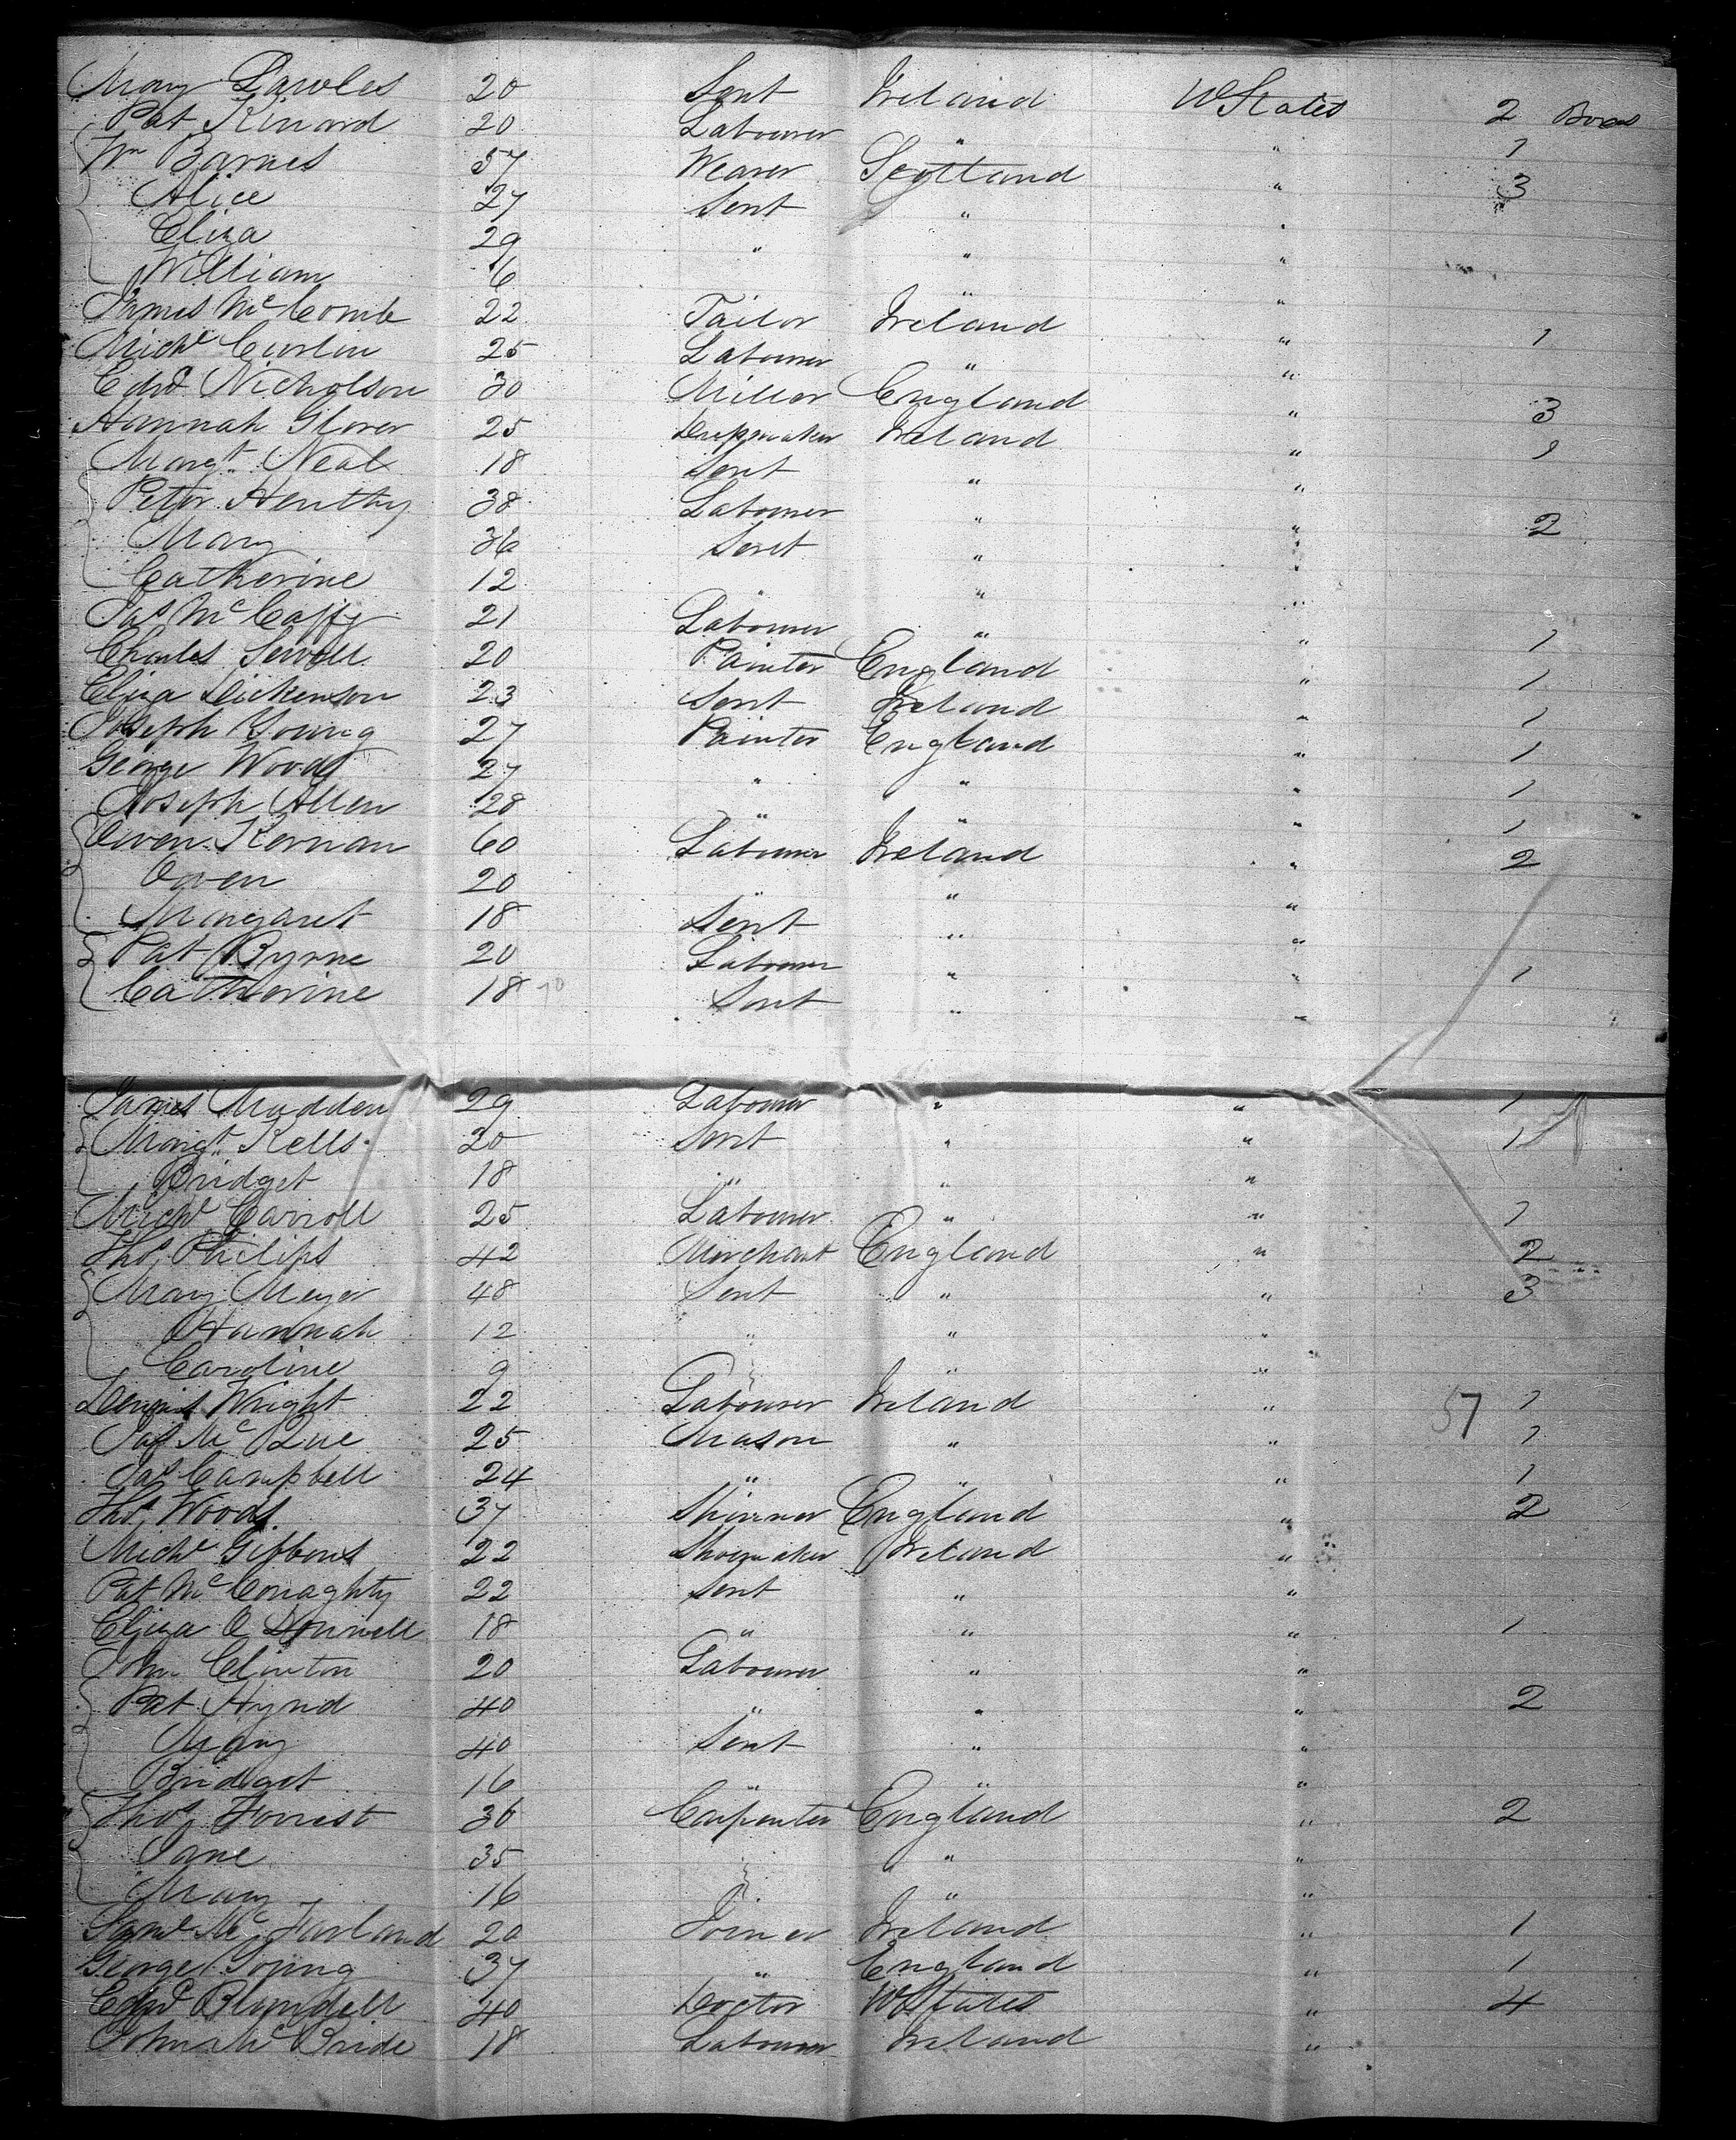 Mary Lawles 20 Sert Ireland U States 2 Boxes
Pat Kinard 20 Labourer " " 1
Wm Barnes 57 Weaver Scotland " 3
Alice 27 Sert " "
Eliza 29 " " "
William 6 " "
James McComb 22 Tailor Ireland " 1
Michl Curlin 25 Labourer " "
Edwd Nicholson 30 Miller England " 3
Hannah Glover 25 Dressmaker Ireland " 1
Margt Neal 18 Sert " "
Peter Henthy 38 Labourer " " 2
Mary 36 Sert " "
Catherine 12 " " "
Jas McCaffy 21 Labourer " " 1
Charles Sewell 20 Painter England " 1
Eliza Dickenson 23 Sert Ireland " 1
Joseph Young 27 Painter England " 1
George Woods 27 " " " 1
Joseph Allen 28 " " " 1
Owen Kernan 60 Labourer Ireland " 2
Owen 20 " " "
Margaret 18 Sert " "
Pat Byrne 20 Labourer " " 1
Catherine 18 Sert " "
James Madden 29 Labourer " " 1
Margt Kells 20 Sert " " 1
Bridget 18 " " "
Michl Carroll 25 Labourer " " 1
Thos Philips 42 Merchant England " 2
Mary Meyer 48 Sert " " 3
Hannah 12 " " "
Caroline 9 " " "
Dennis Wright 22 Labourer Ireland " 57 1
Jas McCue 25 Mason " " 1
Jas Campbell 24 " " " 1
Thos Woods 37 England " 2
Michl Gibbons 22 Shoemaker Ireland "
Pat McConaghty 22 Sert " "
Eliza O Donnell 18 " " " 1
John Clinton 20 Labourer " "
Pat Hynd 40 " " " 2
Mary 40 Sert " "
Bridget 16 " " "
Thos Forrest 36 Carpenter England " 2
Jane 35 " " "
Mary 16 " " "
Saml McFarland 20 Joiner Ireland " 1
George Young 37 " England " 1
Edwd Blundell 40 Doctor U States " 4
John McBride 18 Labourer Ireland "